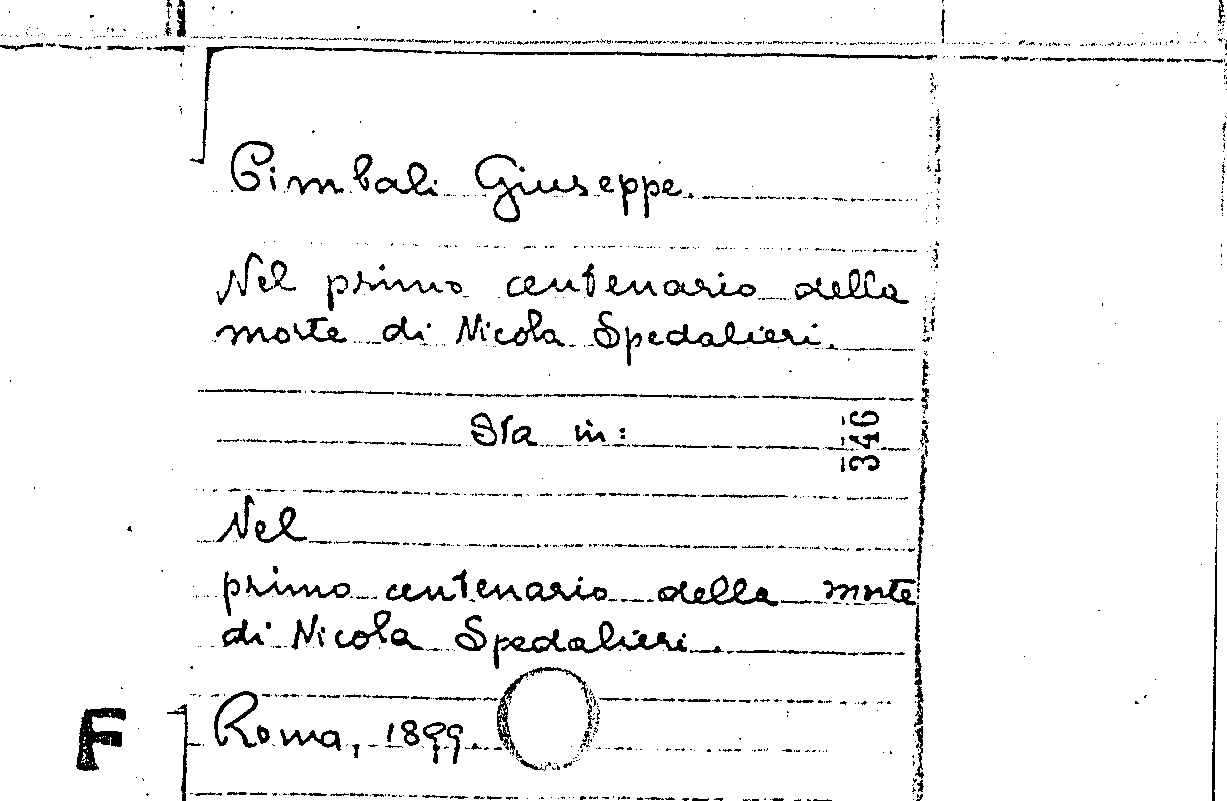 Cimbali Giuseppe.
Nel primo centenario della
morte di Nicola Spedalieri.
Sta in:
346
Nel
primo centenario della morte
di Nicola Spedalieri.
F
Roma, 1899.